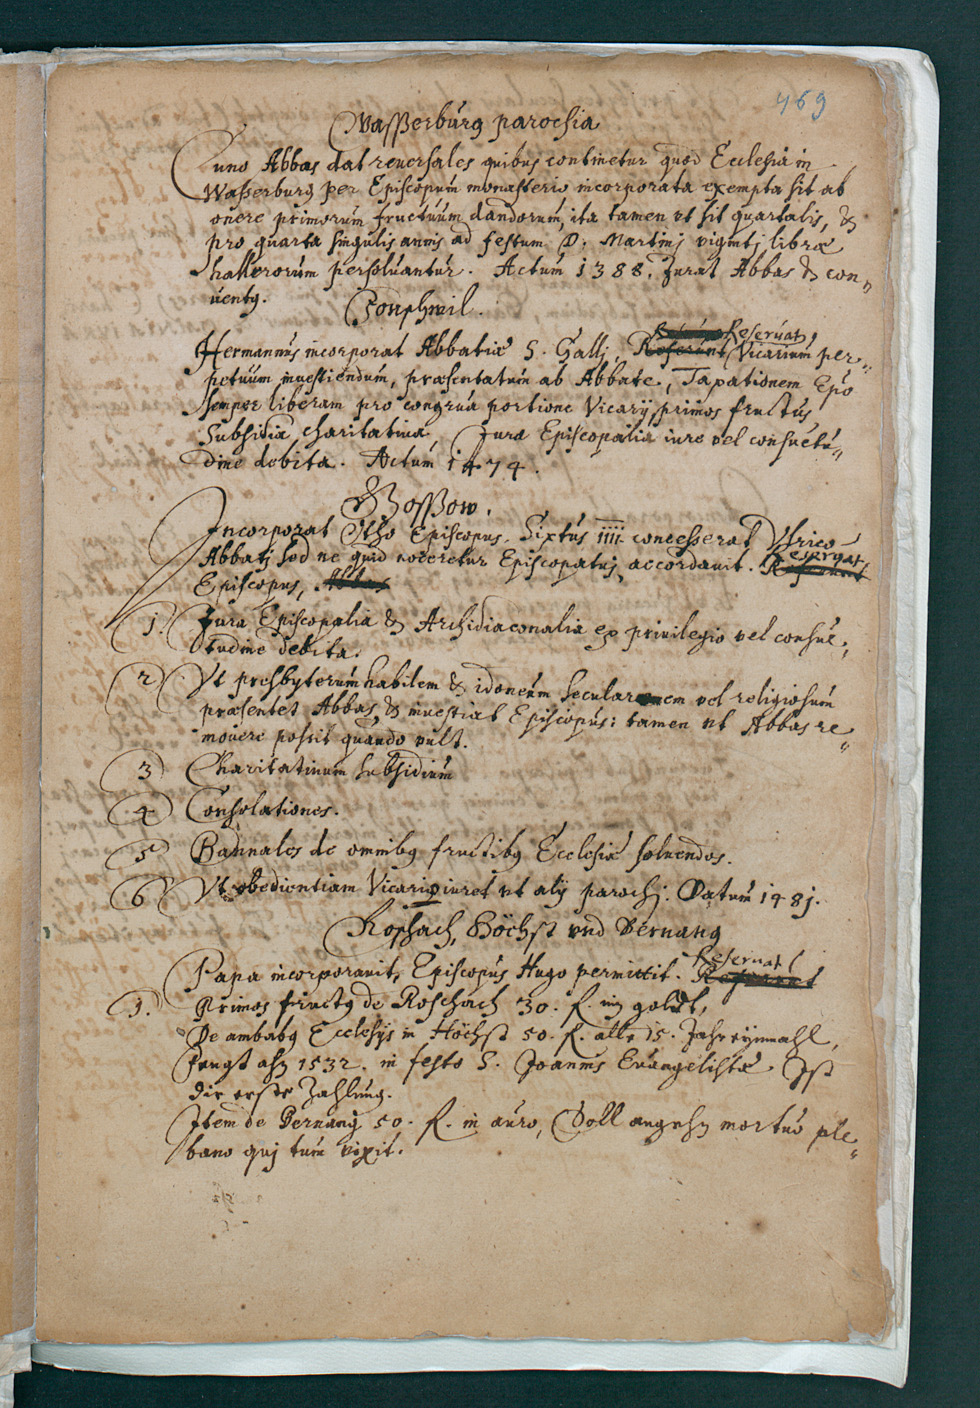 469
Wasserburg parochia
Cuno Abbas dat reuersales quibus continetur quod Ecclesia in
Wasserburg per Episcopum monasterio incorporata exempta sit ab
onere primorum fructuum dandorum, ita tamen vt sit quartalis, &
pro quarta singulis annis ad festum D. Martinj vigintj libræ
hallerorum persoluantur. Actum 1388. Jurat Abbas & con„
uentq.
Jonschwil.
Reseruat,
Hermannus incorporat Abbatiæ S. Gallj, Vicarium per„
petuum inuestiendum, præsentatum ab Abbate, Taxationem Epo
semper liberam pro congrua portione Vicarij, primos fructus
Subsidia charitatiua, Jura Episcopalia iure vel consuetu„
dine debita. Actum 1474.
Gossow.
Incorporat Otho Episcopus. Sixtus IIII. concesserat Vlrico
Abbatj sed ne quid noceretur Episcopatuj, accordauit. Reseruat
Episcopus,
1. Jura Episcopalia & Archidiaconalia ex priuilegio vel consue„
tudine debita.
2 Vt presbyterum habilem & idoneum secularem vel religiosum
præsentet Abbas, & inuestiat Episcopus: tamen vt Abbas re„
mouere possit quando vult.
3 Charitatiuum subsidium
4 Consolationes.
5 Bannales de omnibq fructibq Ecclesiæ soluendos.
6 Vt obedientiam Vicariq iuret vt alij parochj. Datum 1481.
Roschach, Höchst vnd Bernang
Reseruat
Papa incorporauit, Episcopus Hugo permittit.
1. Primos fructq de Roschach 30. f. in goldt,
De ambabq Ecclesijs in Höchst 50. f. alle 15. Jahr eynmahl,
fengt ahn 1532. in festo S. Joannis Euangelistæ Ist
die erste Zahlung.
Item de Bernang 50. f. in auro, Soll angehn mortuo ple„
bano quj tum vixit.